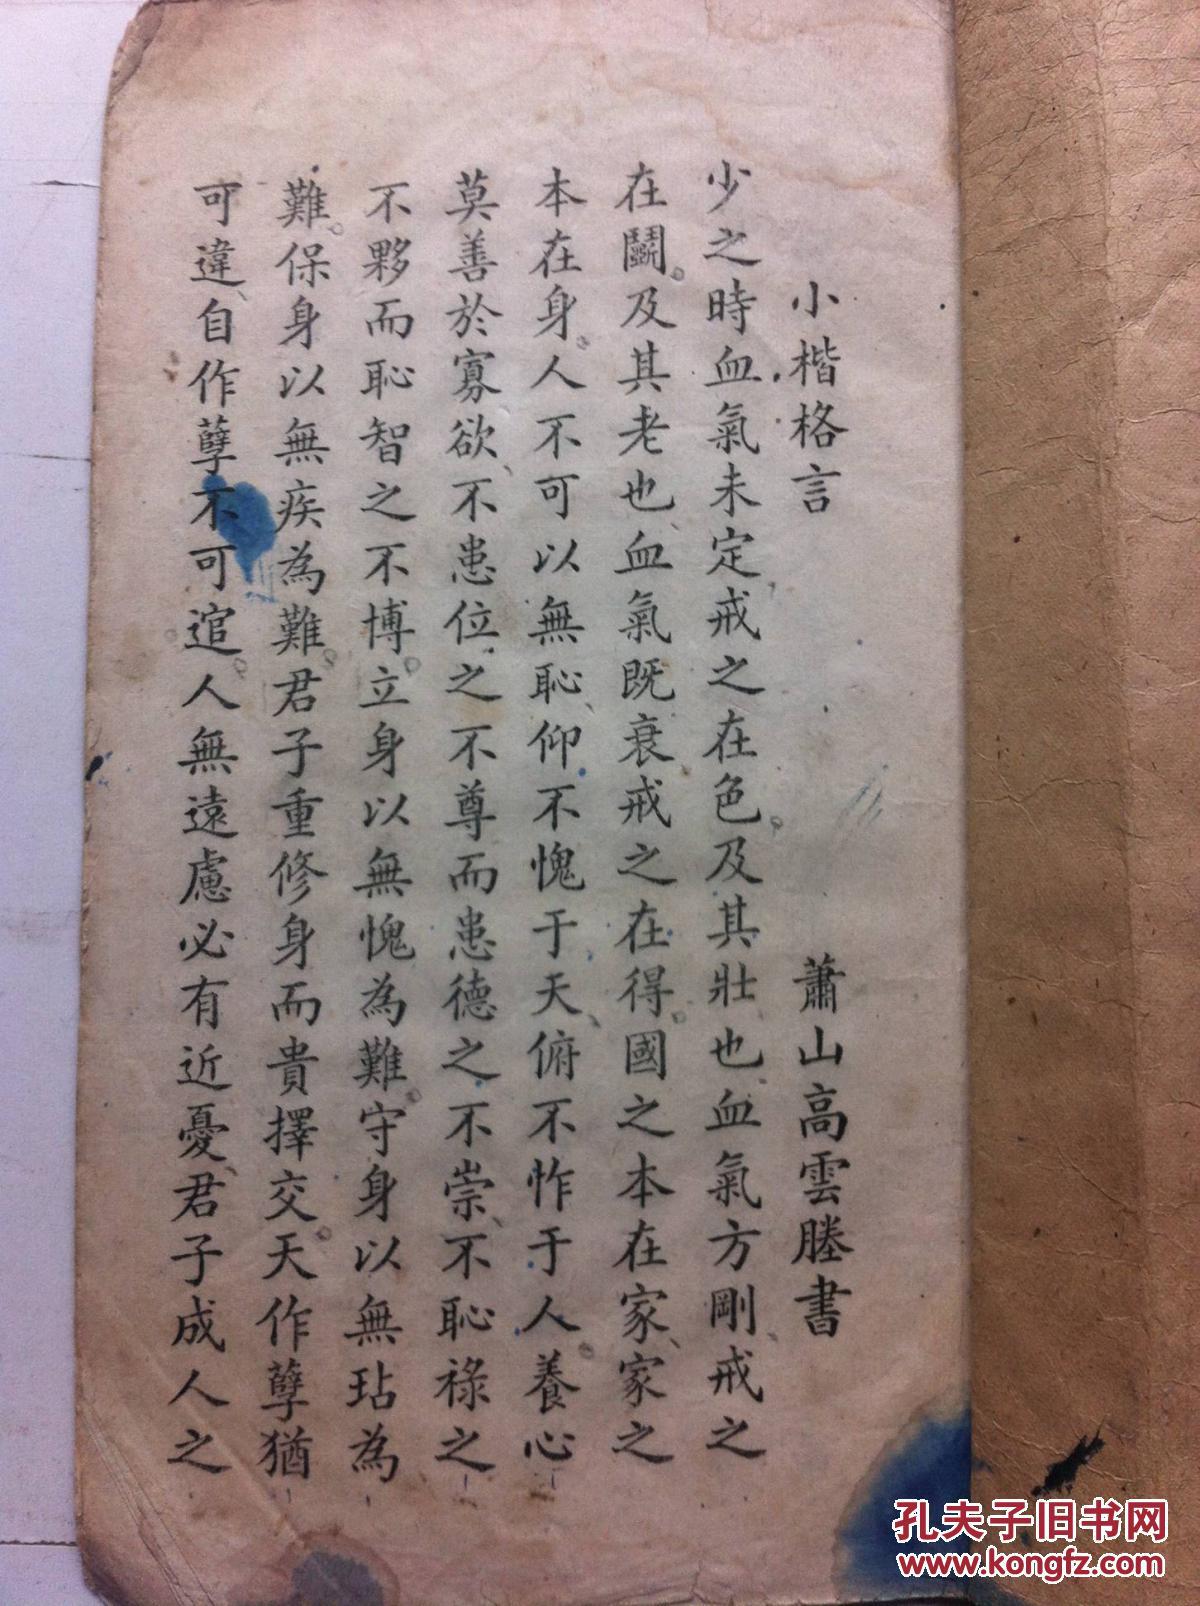 小楷格言 蕭山高雲塍書
少之時血氣未定戒之在色及其壯也血氣方剛戒之
在鬭及其老也血氣既衰戒之在得國之本在家家之
本在身人不可以無恥仰不愧于天俯不怍于人養心
莫善於寡欲不患位之不尊而患德之不崇不恥祿之
不夥而恥智之不博立身以無愧為難守身以無玷為
難保身以無疾為難君子重修身而貴擇交天作孽猶
可違自作孽不可逭人無遠慮必有近憂君子成人之
孔夫子旧书网
www.kongfz.com